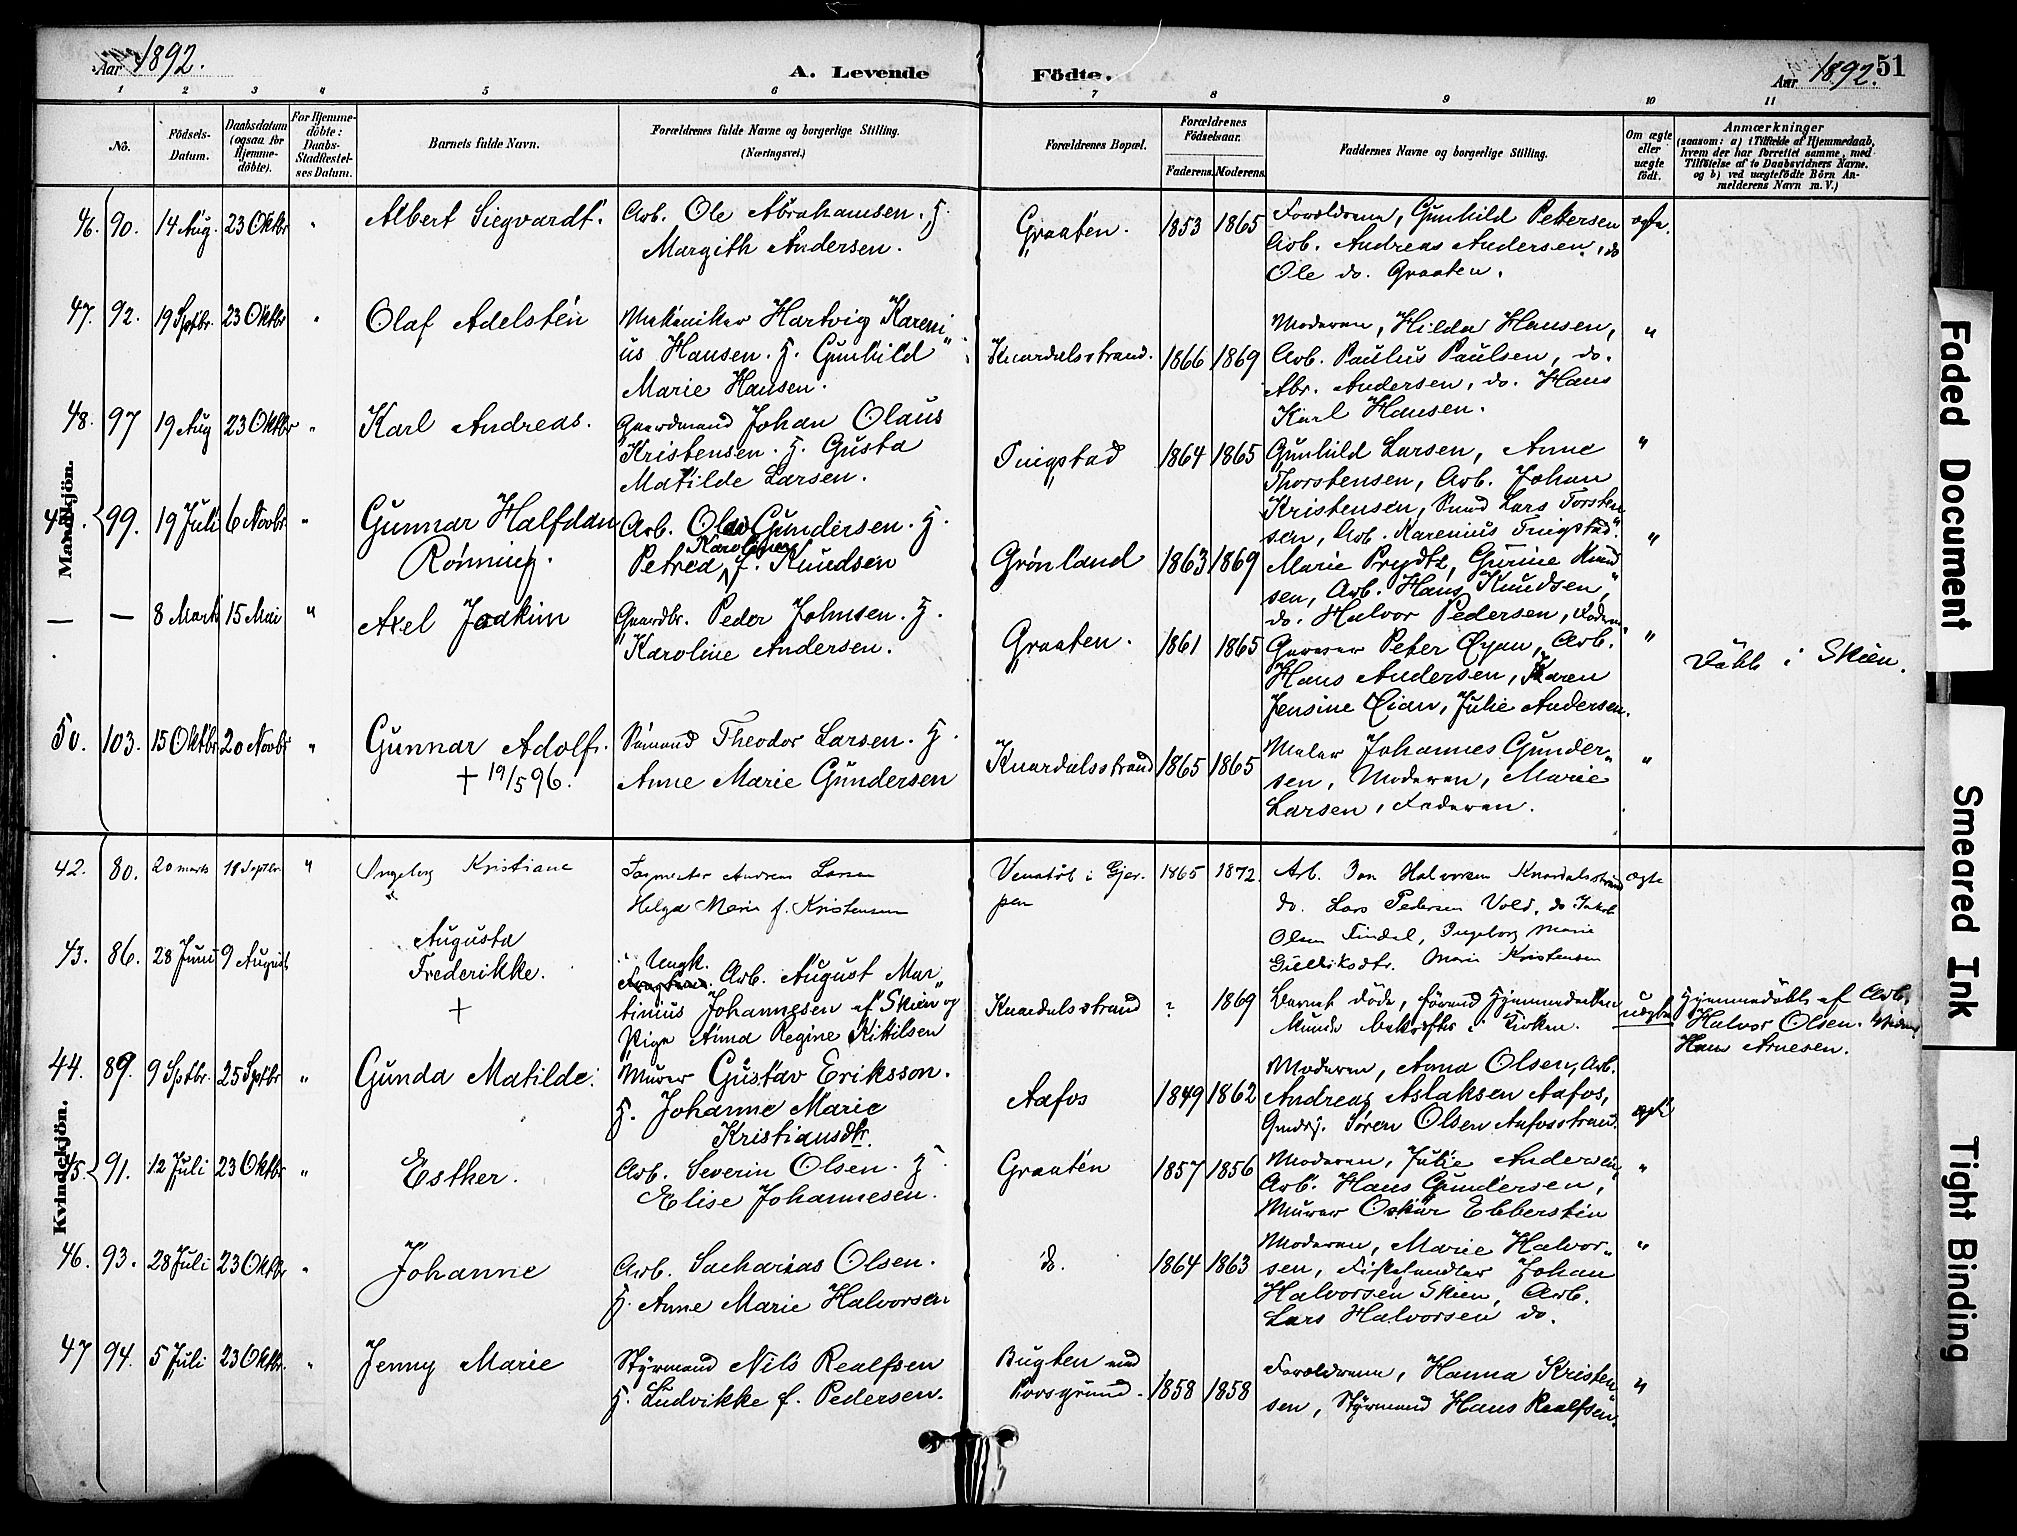 Aar 1892.
A. Levende
Födte.
Aar 1892.
51
1 2 3 4 5 6 7 8 9 10 11
No.
Födsels-Datum.
Daabsdatum (ogsaa for Hjemmedöbte).
For Hjemmedöbte: Daabs-Stadfestelses Datum.
Barnets fulde Navn.
Forældrenes fulde Navne og borgerlige Stilling.
(Næringsvei.)
Forældrenes Bopæl.
Forældrenes Födselsaar.
Faderens. Moderens.
Faddernes Navne og borgerlige Stilling.
Om ægte eller uægte födt.
Anmærkninger
(saasom: a) i Tilfælde af Hjemmedaab, hvem der har forrettet samme, med Tilföielse af to Daabsvidners Navne. og b) ved uægtefödte Börn Anmelderens Navn m. V.)
Mandkjön.
46. 90. 14 Aug. 23 Oktbr " Albert Siegvardt.
Arb. Ole Abrahamsen. H.
Margith Andersen.
Graaten. 1853 1865
Forældrene, Gunhild Pettersen
Arb. Andreas Andersen, do
Ole do. Graaten.
ægte.
47. 92. 19 Septbr. 23 Oktbr " Olaf Adelstén
Mekaniker Hartvig Kareni
us Hansen. H. Gunhild
Marie Hansen.
Knardalsstrand. 1866 1869
Moderen, Hilda Hansen,
Arb. Paulus Paulsen, do.
Abr. Andersen, do. Hans
Karl Hansen.
"
48. 97 19 Aug 23 Oktbr " Karl Andreas.
Gaardmand Johan Olaus
Kristensen. H. Gusta
Matilde Larsen.
Tnigstad 1864 1865
Gunhild Larsen, Anne
Thorstensen, Arb. Johan
Kristensen, Smed Lars Torsten
sen, Arb. Karenius Tnigstad.
"
99. 19 Juli 6 Novbr. " Gunnar Halfdan
Rönning.
Arb. Olav Gundersen. H.
Petrea Karoline f. Knudsen
Grönland 1863 1869
Marie Prydtz, Gurine Knud
sen, Arb. Hans Knudsen,
do. Halvor Pedersen, Faderen
"
— — 8 Marts 15 Mai " Axel Joakim
Gaardbr. Peder Johnsen. H.
Karoline Andersen.
Graaten. 1861 1865
Garver Peter Oyan, Arb.
Hans Andersen, Karen
Jensine Oian, Julie Andersen.
"
Döbt i Skien.
50. 103. 15 Oktbr 20 Novbr " Gunnar Adolf.
+ 19/5 96.
Sömand Theodor Larsen. H.
Anne Marie Gundersen
Knardalsstrand 1865 1865
Maler Johannes Gunder-
sen, Moderen, Marie
Larsen, Faderen.
"
Kvindekjön.
42. 80. 20 marts 18 Septbr. " Ingeborg Kristiane
Andreas Larsen
Helga Marie f. Kristensen
Venstöb i Gjer-
pen
1865 1872
Arb. Jan Halvorsen Knardalsstrand
do. Lars Pedersen Vold, do Jakob
Olsen Findal, Ingeborg Marie
Gulliksdtr. Marie Kristensen
ægte
43. 86. 28 Juni 9 August
Augusta
Frederikke.
+
Ungk.
Arb. August Mar
tinius Johannesen af Skien og
Pige Anna Regine Kittilsen
Knardalsstrand ? 1869
Barnet döde, förend Hjemmedaaben
kunde bekræftes i Kirken.
uægte
Hjemmedöbt af Arb.
Halvor Olsen.
Hans Arnesen.
44. 89. 9 Septbr. 25 Septbr " Gunda Matilde.
Murer Gustav Eriksson.
H. Johanne Marie
Kristiansdtr.
Aafos 1849 1862
Moderen, Anna Olsen, Arb.
Andreas Aslaksen Aafos,
Gmdrj. Sören Olsen Aafosstrand.
ægte
45 91. 12 Juli 23 Oktbr " Esther.
Arb. Severin Olsen. H.
Elise Johannesen.
Graaten 1857 1856
Moderen, Julie Andersen,
Arb. Hans Gundersen,
Murer Oskar Ebberstén
"
46. 93. 28 Juli 23 Oktbr " Johanne
Arb. Sacharias Olsen.
H. Anne Marie Halvorsen
do. 1864 1863
Moderen, Marie Halvor-
sen, Fiskehandler Johan
Halvorsen Skien, Arb.
Lars Halvorsen do.
"
47 94. 5 Juli 23 Oktbr. " Jenny Marie
Styrmand Nils Realfsen
H. Ludvikke f. Pedersen.
Bugten ved
Porsgrund. 1858 1858
Forældrene, Hanna Kristen
sen, Styrmand Hans Realfsen.
"
Faded Document
Smeared Ink
Tight Binding